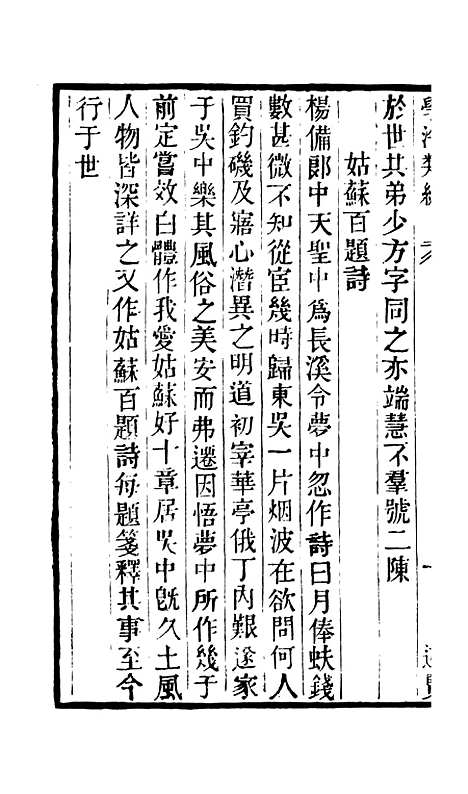 學海類編
於世其弟少方字同之亦端慧不羣號二陳
姑蘇百題詩
楊備郎中天聖中爲長溪令夢中忽作詩曰月俸蚨錢
數甚微不知從宦幾時歸東吳一片烟波在欲問何人
買釣磯及寤心潛異之明道初宰華亭俄丁內艱遂家
于吳中樂其風俗之美安而弗遷因悟夢中所作幾于
前定嘗效白體作我愛姑蘇好十章居吳中旣久土風
人物皆深詳之又作姑蘇百題詩每題箋釋其事至今
行于世